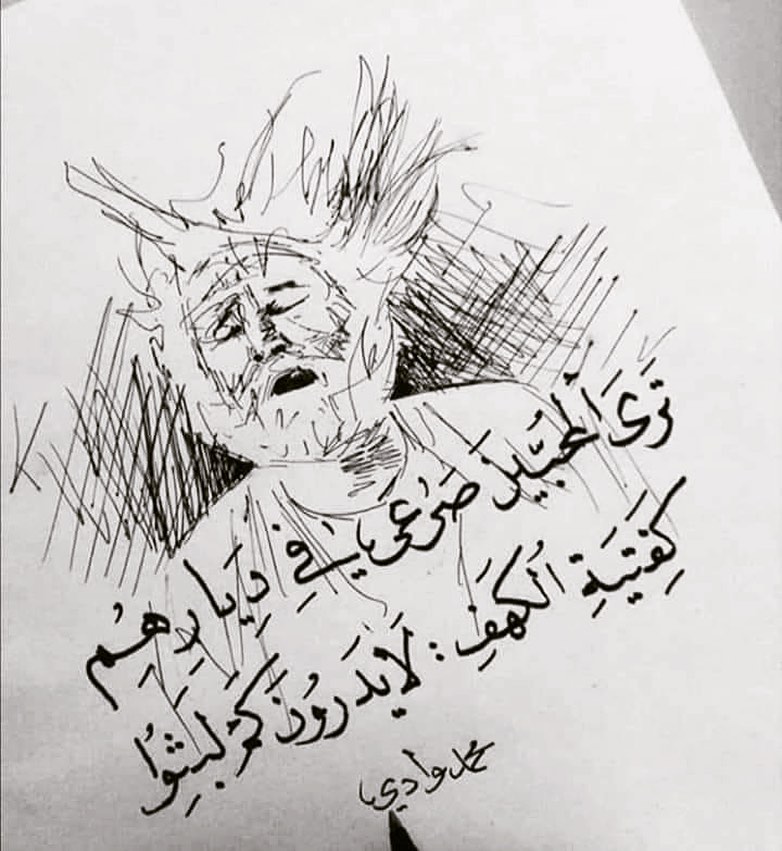 تَرَى ٱلْمُحِبِّينَ صَرْعَى في دِيَارِهِمُ
كَفِتْيَةِ الْكَهْفِ: لَا يَدْرُونَ كَمْ لَبِثُوا
محمد وادي